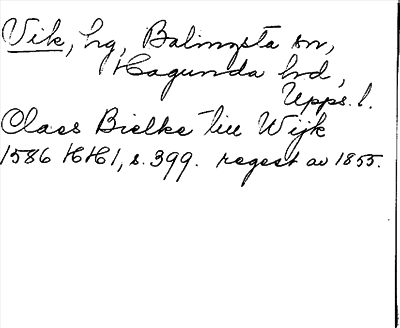 Vik, hg, Balingsta sn,
Hagunda hd,
Upps. l.
Claes Bielke till Wijk
1586 HH1, s. 399. regest av 1855.